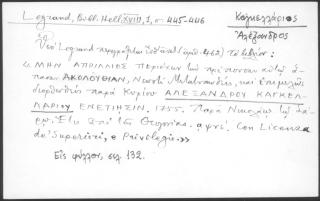 Legrand, Bibl. Hell. XVIII, 1, σ. 445-446
Καγκελλάριος
Ἀλέξανδρος
Legrand περιγράφει (ἀριθ. 462) Τὸ βιβλίον:
«ΜΗΝ ΑΠΡΙΛΙΟΣ Περιέχων τὴν πρέπουσαν αὐτῷ ἅ-
πασαν ΑΚΟΛΟΥΘΙΑΝ, Νεωστὶ Μετατυπωθεὶς, καὶ ἐπιμελῶς
διορθωθεὶς παρὰ Κυρίου ΑΛΕΞΑΝΔΡΟΥ ΚΑΓΚΕΛ-
ΛΑΡΙΟΥ ΕΝΕΤΙΗΣΙΝ. 1755. Παρὰ Νικολάῳ τῷ Σά-
ρῳ. Ἔτει τῆς Θεογονίας. αψνέ. Con Licenza
de' Superiori, e Privilegio.»
Εἰς φύλλον, σελ. 132.